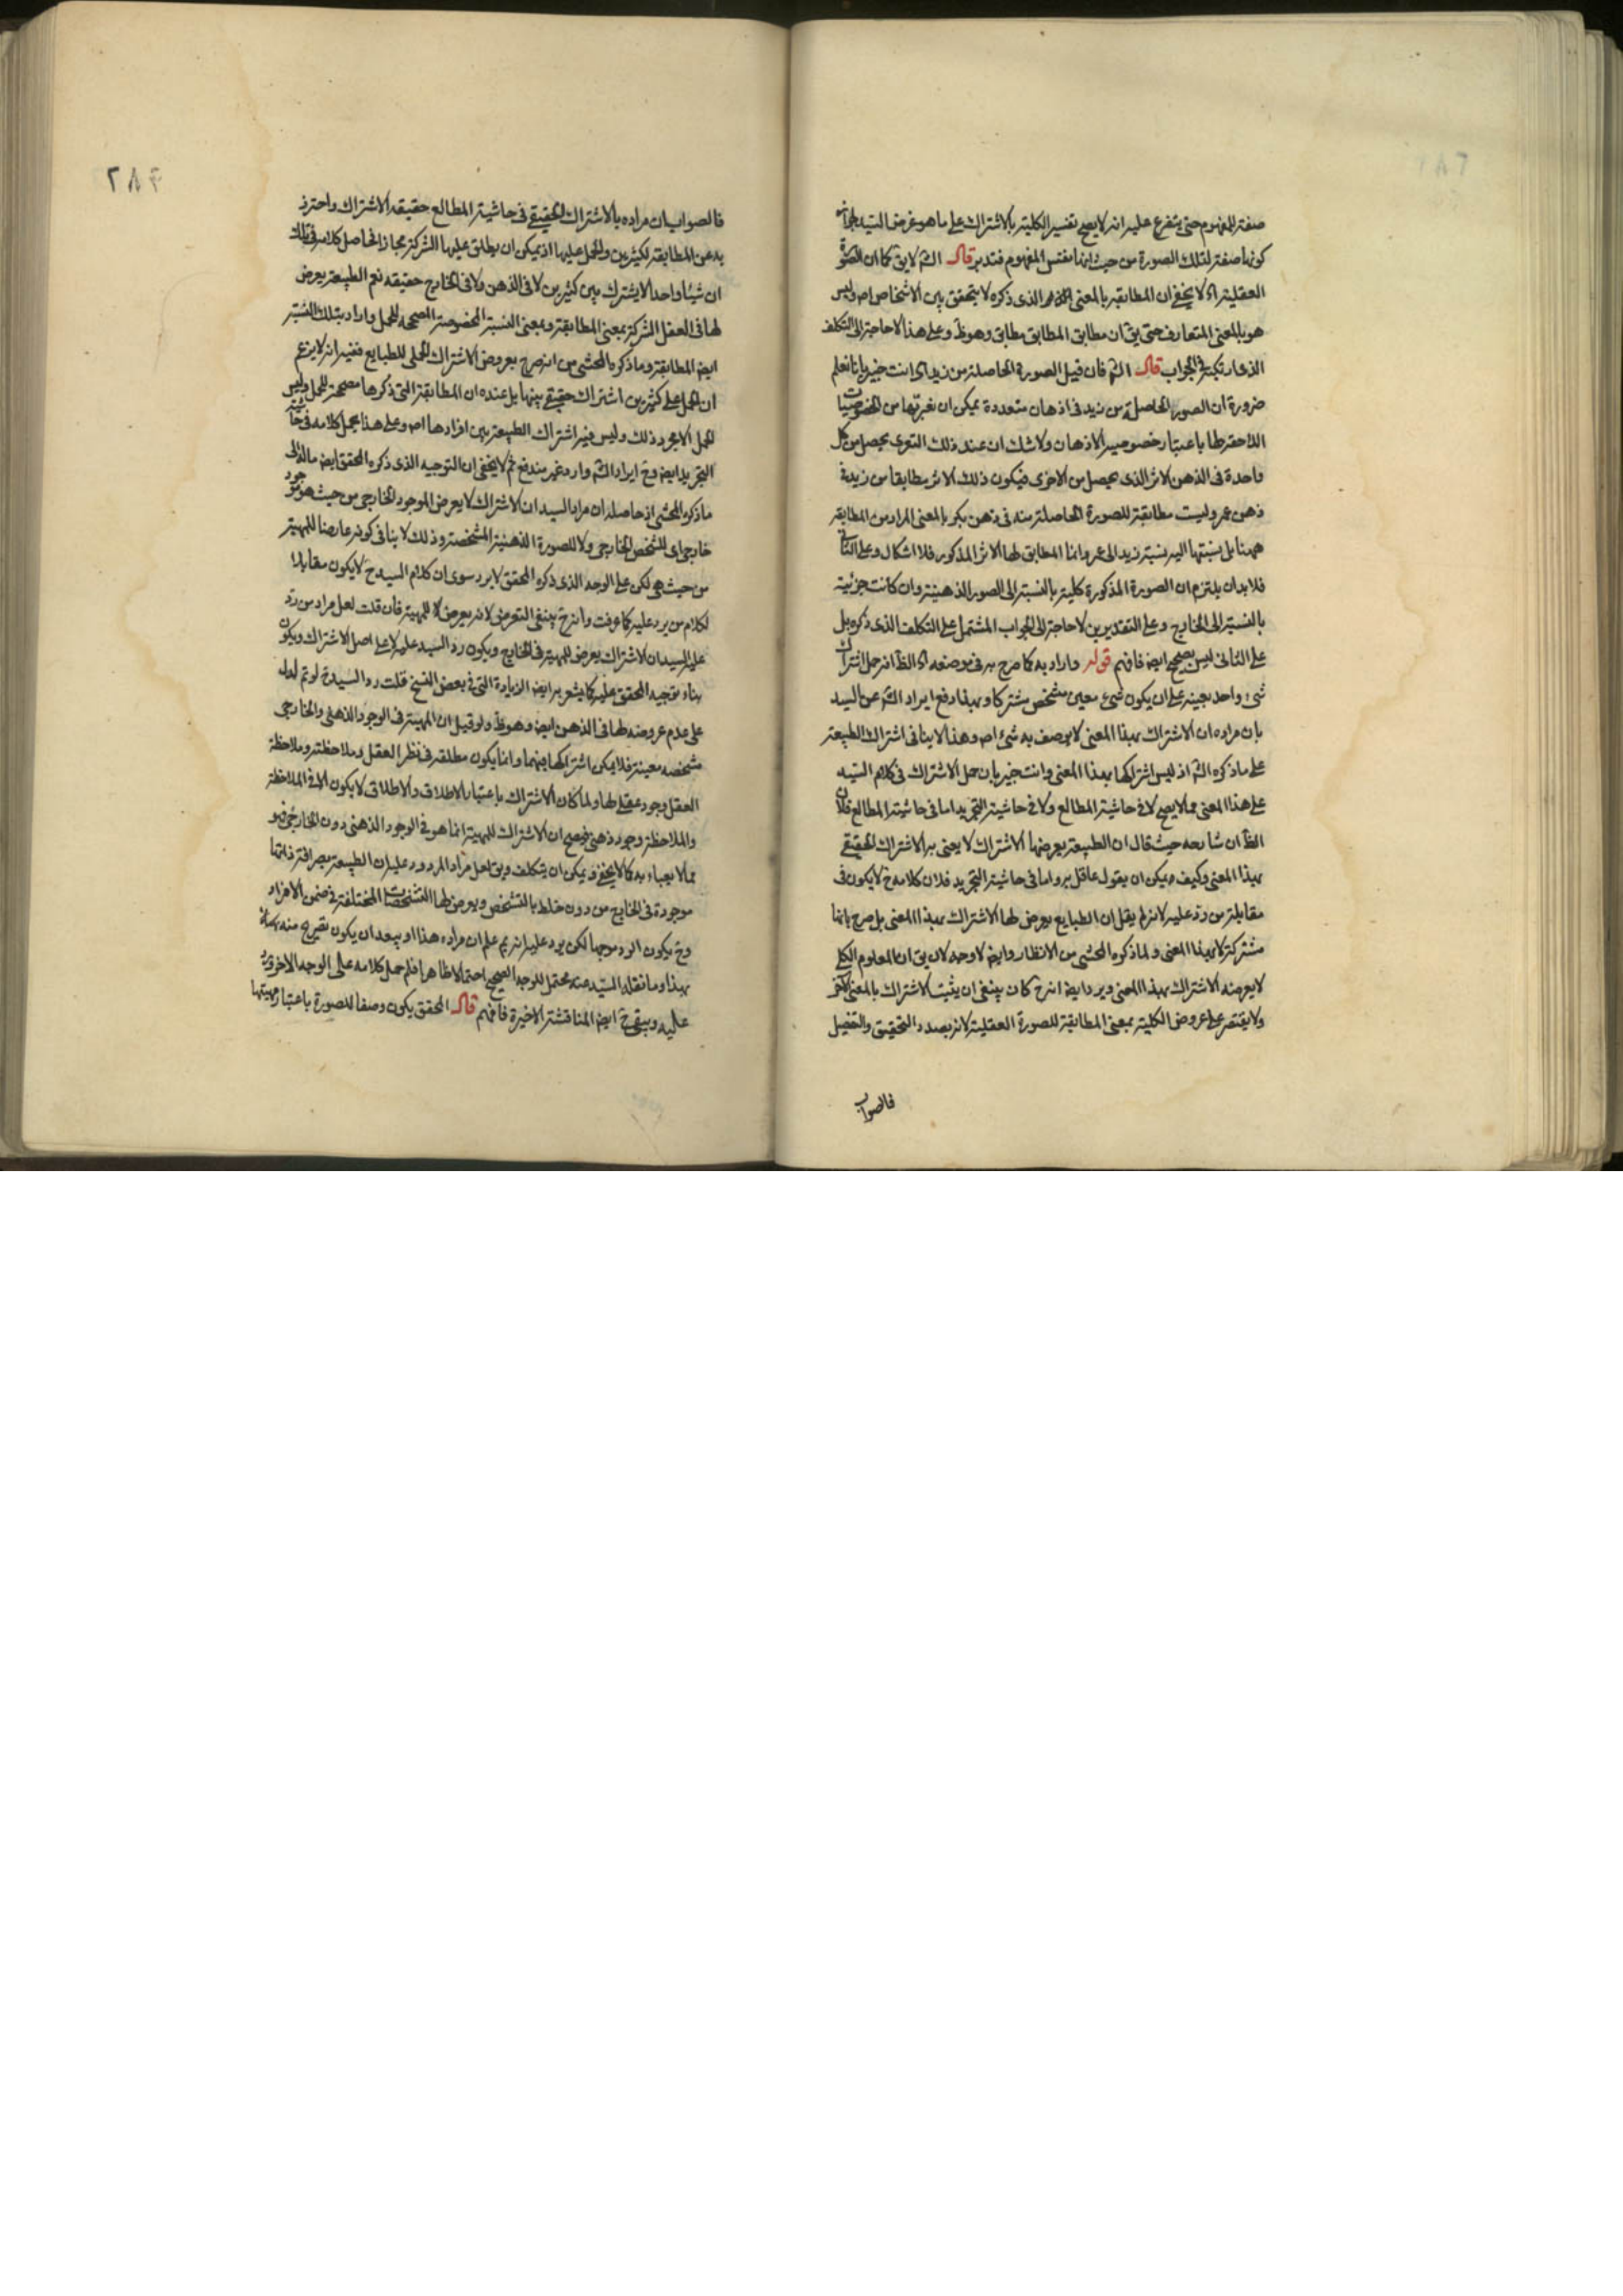 صفة للمفهوم حتى يتفرع عليه انه لا يصح تفسير الكلية بالاشتراك على ما هو غرض السيد
كونها صفة لتلك الصورة من حيث انها نفس المفهوم فتدبر قال الشم لا يق كما ان الصورة
العقلية اه لا يخفى ان المطابقة بالمعنى الذى ذكره لا يتحقق بين الاشخاص اصلا وليس
هو بالمعنى المتعارف حتى يق ان مطابق المطابق مطابق وهو ظ وعلى هذا لا حاجة الى التكلف
الذى ارتكبه فى الجواب قال الشم فان قيل الصورة الحاصلة من زيد اه انت خبير بانا نعلم
ضرورة ان الصور الحاصلة من زيد فى اذهان متعددة يمكن ان نعريها من الخصوصيات
اللاحقة لها باعتبار خصوصية الاذهان ولا شك ان عند ذلك التعرى يحصل من كل
واحدة فى الذهن الاثر الذى يحصل من الاخرى فيكون ذلك الاثر مطابقا من زيد فى
ذهن عمرو ليست مطابقة للصورة الحاصلة منه فى ذهن بكر بالمعنى المراد من المطابقة
ههنا بل نسبتها اليه نسبة زيد الى عمرو انما المطابق لها الاثر المذكور فلا اشكال وعلى الثانى
فلا بد ان يلتزم ان الصورة المذكورة كلية بالنسبة الى الصور الذهنية وان كانت جزئية
بالنسبة الى الخارج وعلى التقديرين لا حاجة الى الجواب المشتمل على التكلف الذى ذكره بل
على الثانى ليس بصحيح ايضا فافهم قوله واراد به كما صرح به فى موضعه اه الظ انه حمل اشتراك
شىء واحد بعينه على ان يكون شىء معين مشخص مشتركا وبهذا دفع ايراد الشم عن السيد
بان مراده ان الاشتراك بهذا المعنى لا يوصف به شىء اصلا وهذا لا ينافى اشتراك الطبيعة
على ما ذكره الشم اذ ليس اشتراكها بهذا المعنى وانت خبير بان حمل الاشتراك فى كلام السيد
على هذا المعنى مما لا يصح لا فى حاشية المطالع ولا فى حاشية التجريد اما فى حاشية المطالع فلان
الظ ان شايعه حيث قال ان الطبيعة يعرضها الاشتراك لا يعنى به الاشتراك الحقيقى
بهذا المعنى وكيف ويمكن ان يقول عاقل به واما فى حاشية التجريد فلان كلامه ح لا يكون فى
مقابلة من رد عليه لانه لم يقل ان الطبايع يعرض لها الاشتراك بهذا المعنى بل صرح بانها
مشتركة لا بهذا المعنى ولما ذكره المحشى من الانظار وايضا لا وجه لان يق ان المعلوم الكلى
لا يعرضه الاشتراك بهذا المعنى ويرد ايضا انه ح كان ينبغى ان يثبت الاشتراك بالمعنى الاخر
ولا يقتصر على عروض الكلية بمعنى المطابقة للصورة العقلية لانه بصدد التحقيق والتفصيل
فالصواب
٢٨٤
فالصواب ان مراده بالاشتراك الحقيقى فى حاشية المطالع حقيقة الاشتراك واحترز
به عن المطابقة لكثيرين والحمل عليها اذ يمكن ان يطلق عليها الشركة مجازا فحاصل كلامه فى تلك
ان شيئا واحدا لا يشترك بين كثيرين لا فى الذهن ولا فى الخارج حقيقة نعم الطبيعة يعرض
لها فى العقل الشركة بمعنى المطابقة وبمعنى النسبة المخصوصة المصححة للحمل واراد بتلك النسبة
ايضا المطابقة وما ذكره المحشى من انه صرح بعروض الاشتراك الحملى للطبايع ففيه انه لا يزعم
ان الحمل على كثيرين اشتراك حقيقى بينها بل عنده ان المطابقة التى ذكرها مصححة للحمل وليس
الحمل الا مجرد ذلك وليس فيه اشتراك الطبيعة بين افرادها اصلا وعلى هذا يحمل كلامه فى حاشية
التجريد ايضا وح ايراد الشم وارد غير مندفع ثم لا يخفى ان التوجيه الذى ذكره المحقق ايضا ماله الى
ما ذكره المحشى اذ حاصله ان مراد السيد ان الاشتراك لا يعرض الموجود الخارجى من حيث هو موجود
خارجى اى للشخص الخارجى ولا للصورة الذهنية المشخصة وذلك لا ينافى كونه عارضا للمهية
من حيث هى لكن على الوجه الذى ذكره المحقق لا يرد سوى ان كلام السيد ح لا يكون مقابلا
لكلام من يرد عليه كما عرفت وانه ح ينبغى التعرض لانه يعرض للمهية فان قلت لعل مراد من رد
على السيد ان الاشتراك يعرض للمهية فى الخارج ويكون رد السيد عليه لا على اصل الاشتراك ويكون
بناء توجيه المحقق عليه كما يشعر به ايضا الزيادة التى فى بعض النسخ قلت رد السيد ح لو تم لدل
على عدم عروضه لها فى الذهن ايضا وهو ظ ولو قيل ان المهية فى الوجود الذهنى والخارجى
مشخصة معينة فلا يمكن اشتراكها فيهما وانما يكون مطلقة فى نظر العقل وملاحظته وملاحظة
العقل وجود عقلى لها ولما كان الاشتراك باعتبار الاطلاق والاطلاق لا يكون الا فى الملاحظة
والملاحظة وجود ذهنى فيصح ان الاشتراك للمهية انما هو فى الوجود الذهنى دون الخارجى فهو
مما لا يعباء به كما لا يخفى ويمكن ان يتكلف ويق لعل مراد المردود عليه ان الطبيعة بصرافة ذاتها
موجودة فى الخارج من دون خلط بالتشخص ويعرض لها التشخصات المختلفة فى ضمن الافراد
وح يكون الرد موجها لكن يرد عليه انه بم علم ان مراده هذا او يبعد ان يكون تصريح منه
بهذا وما نقله السيد عنه محتمل للوجه الصحيح احتمالا ظاهرا فلم حمل كلامه على الوجه الاخر ويرد
عليه ويبقى ح ايضا المناقشة الاخيرة فافهم قال المحقق يكون وصفا للصورة باعتبار مهيتها